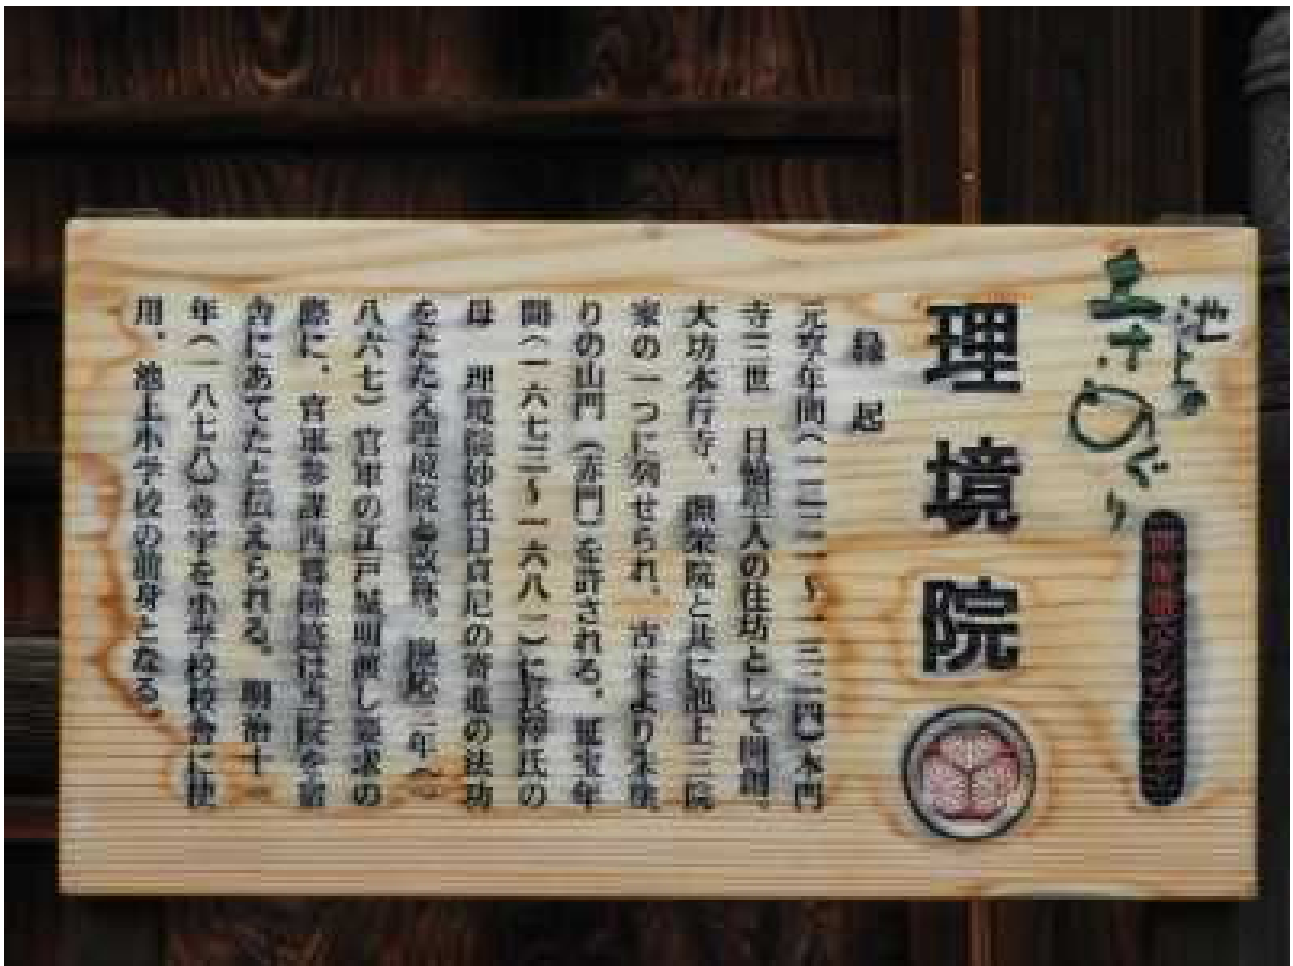 池上の
まち めぐり
理境院
縁起
元亨年間(一三二一~一三二四)本門
寺三世 日輪聖人の住坊として開創。
大坊本行寺、照栄院と共に池上三院
家の一つに列せられ、古来より朱塗
りの山門(赤門)を許される。延宝年
間(一六七三~一六八一)に長澤氏の
母 理境院妙性日貞尼の寄進の法功
をたたえ理境院と改称。慶応三年(一
八六七)官軍の江戸城明渡し要求の
際に、官軍参謀西郷隆盛は当院を宿
舎にあてたと伝えられる。明治十一
年(一八七八)堂宇を小学校校舎に使
用、池上小学校の前身となる。